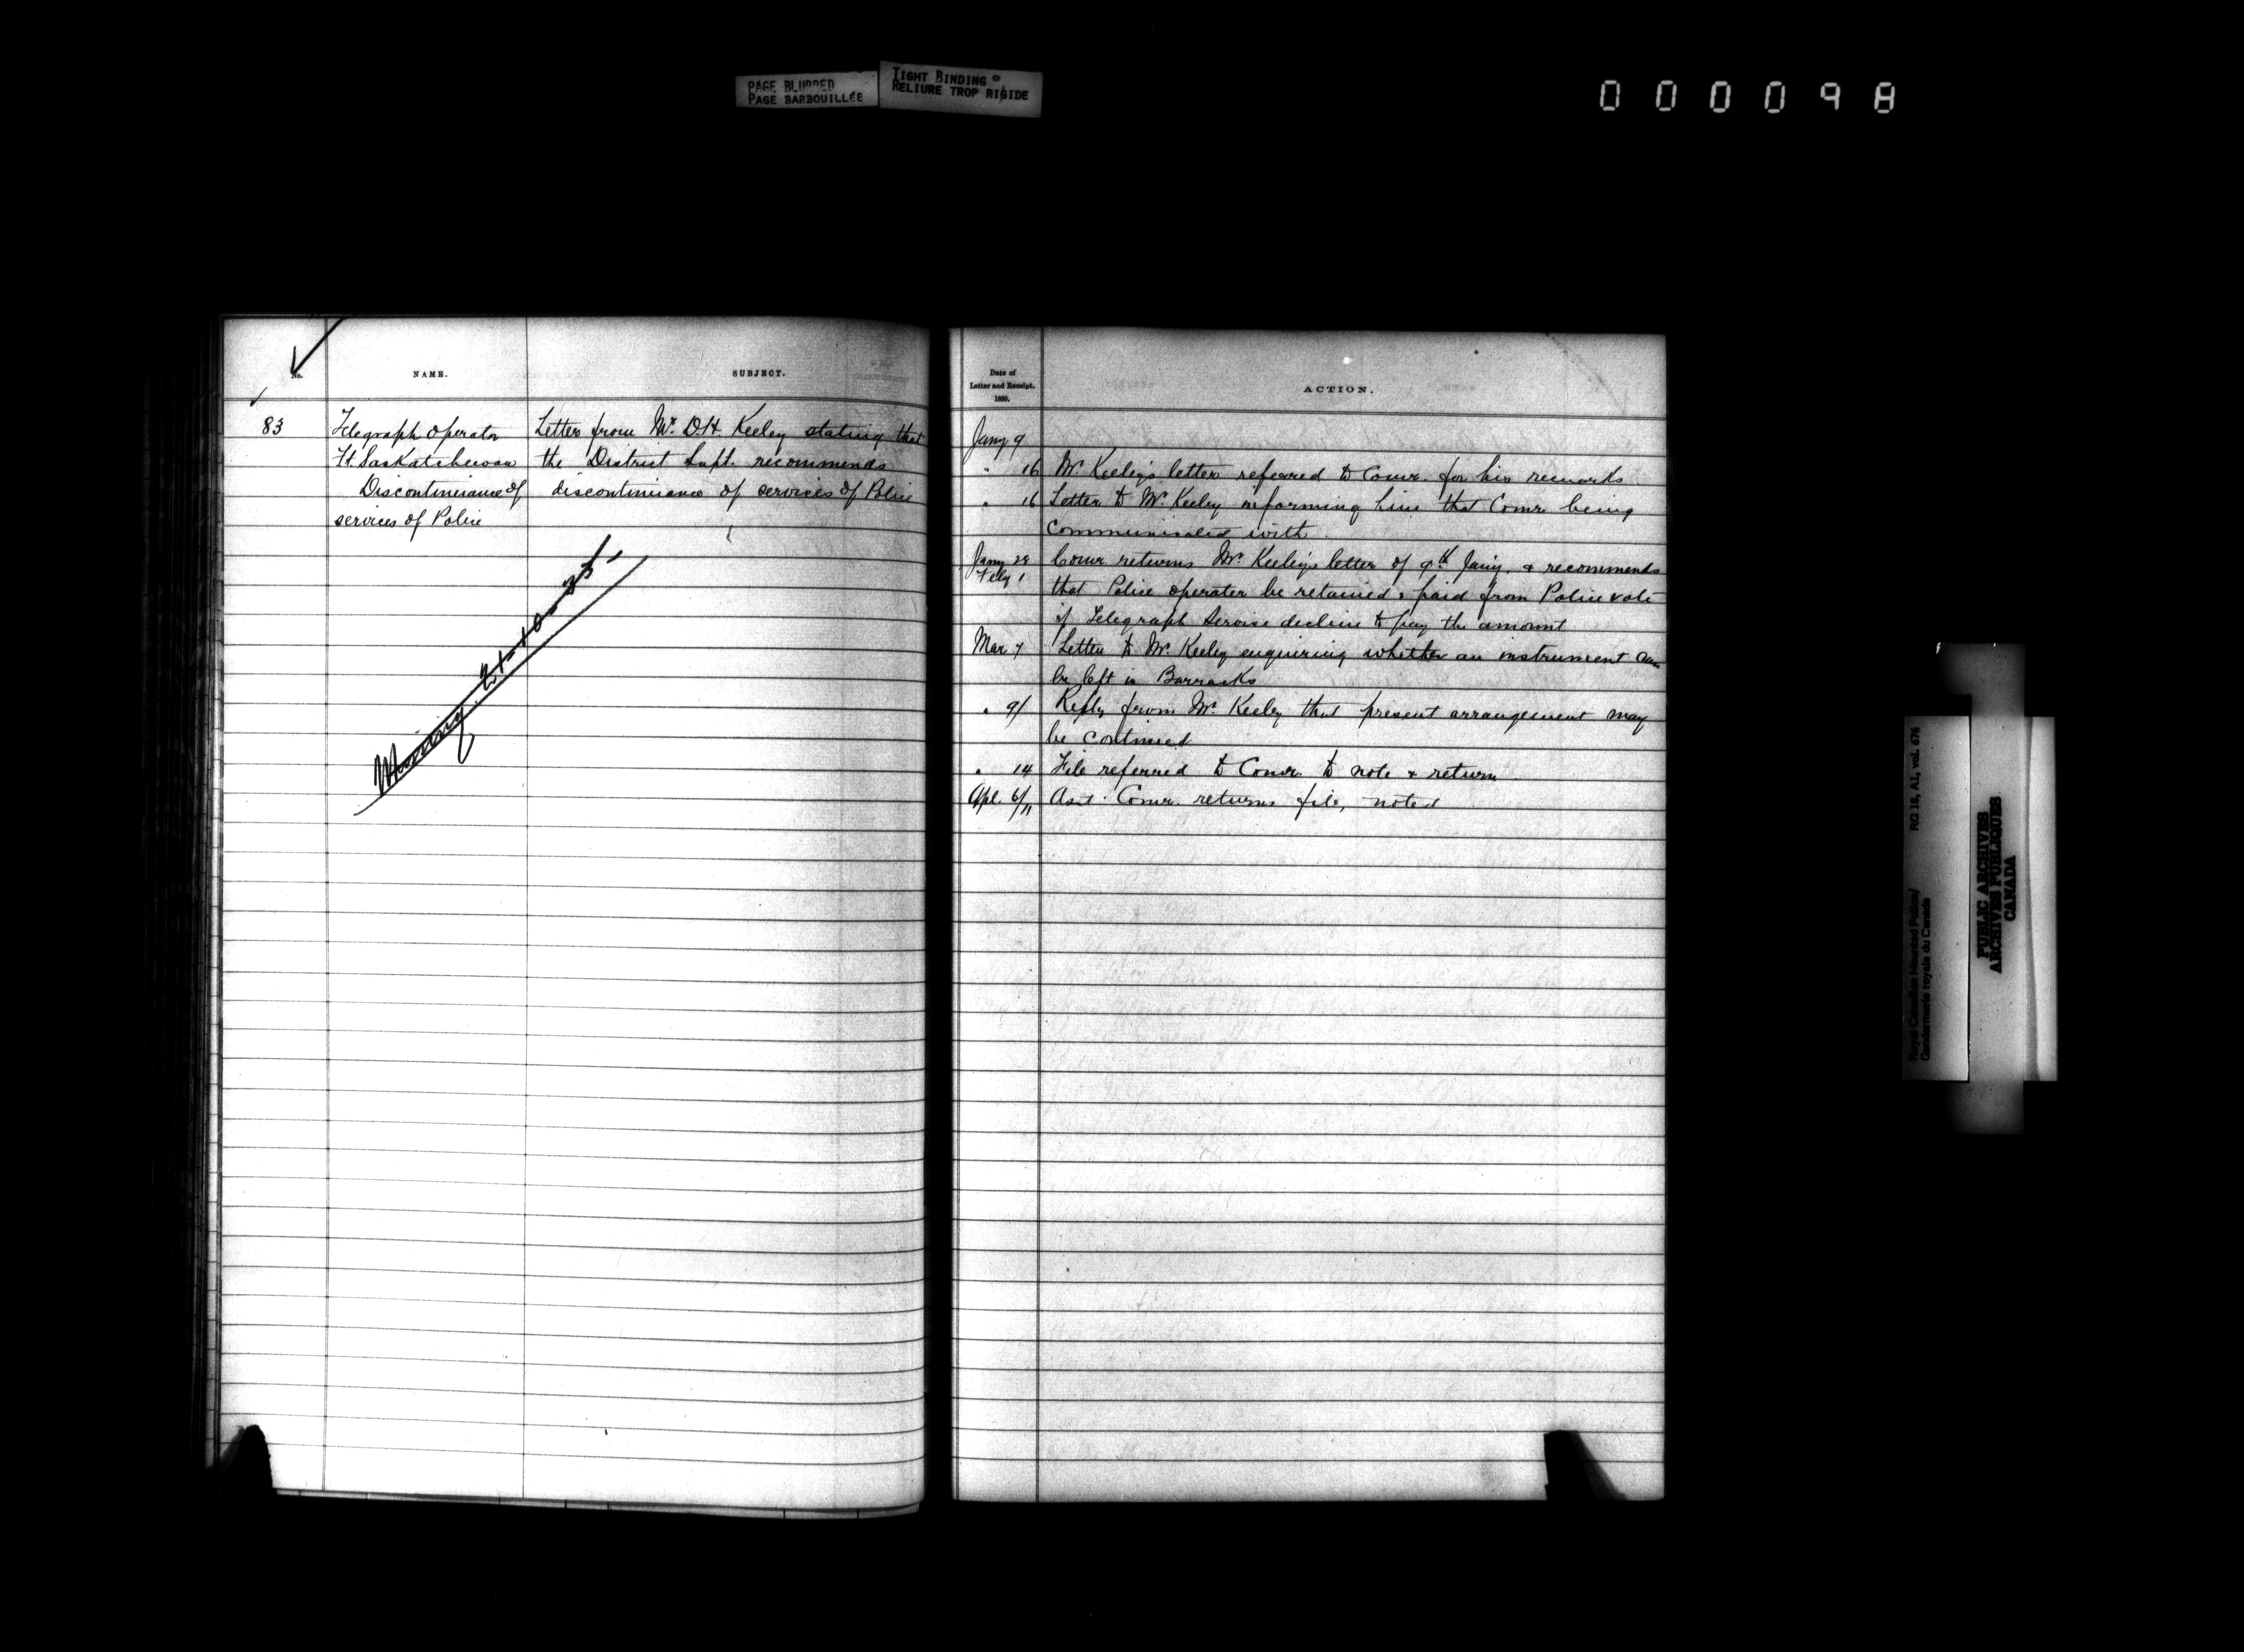 PAGE BLURRED
PAGE BARBOUILLÉE
TIGHT BINDING
RELIURE TROP RIGIDE
000098
No.
NAME.
SUBJECT.
83
Telegraph Operator
Ft. Saskatchewan
Discontinuance of
services of Police
Letter from Mr. D.H. Keeley stating that
the District Supt. recommends
discontinuance of services of Police
Missing 21-10-35
Date of
Letter and Receipt.
1899.
ACTION.
Jany 9
" 16 Mr. Keeley's letter referred to Comr. for his remarks
" 16 Letter to Mr. Keeley informing him that Comr. being
communicated with
Jany 28
Feby 1
Comr. returns Mr. Keeley's letter of 9th Jany. & recommends
that Police operater be retained & paid from Police vote
if Telegraph Service decline to pay the amount
Mar 7 Letter to Mr. Keeley enquiring whether an instrument can
be left in Barracks
" 9/ Reply from Mr. Keeley that present arrangement may
be continued
" 14 File referred to Comr. to note & return
Apl. 6/11 Asst. Comr. returns file, noted
Royal Canadian Mounted Police/
Gendarmerie royale du Canada
RG 18, A1, vol. 676
PUBLIC ARCHIVES
ARCHIVES PUBLIQUES
CANADA